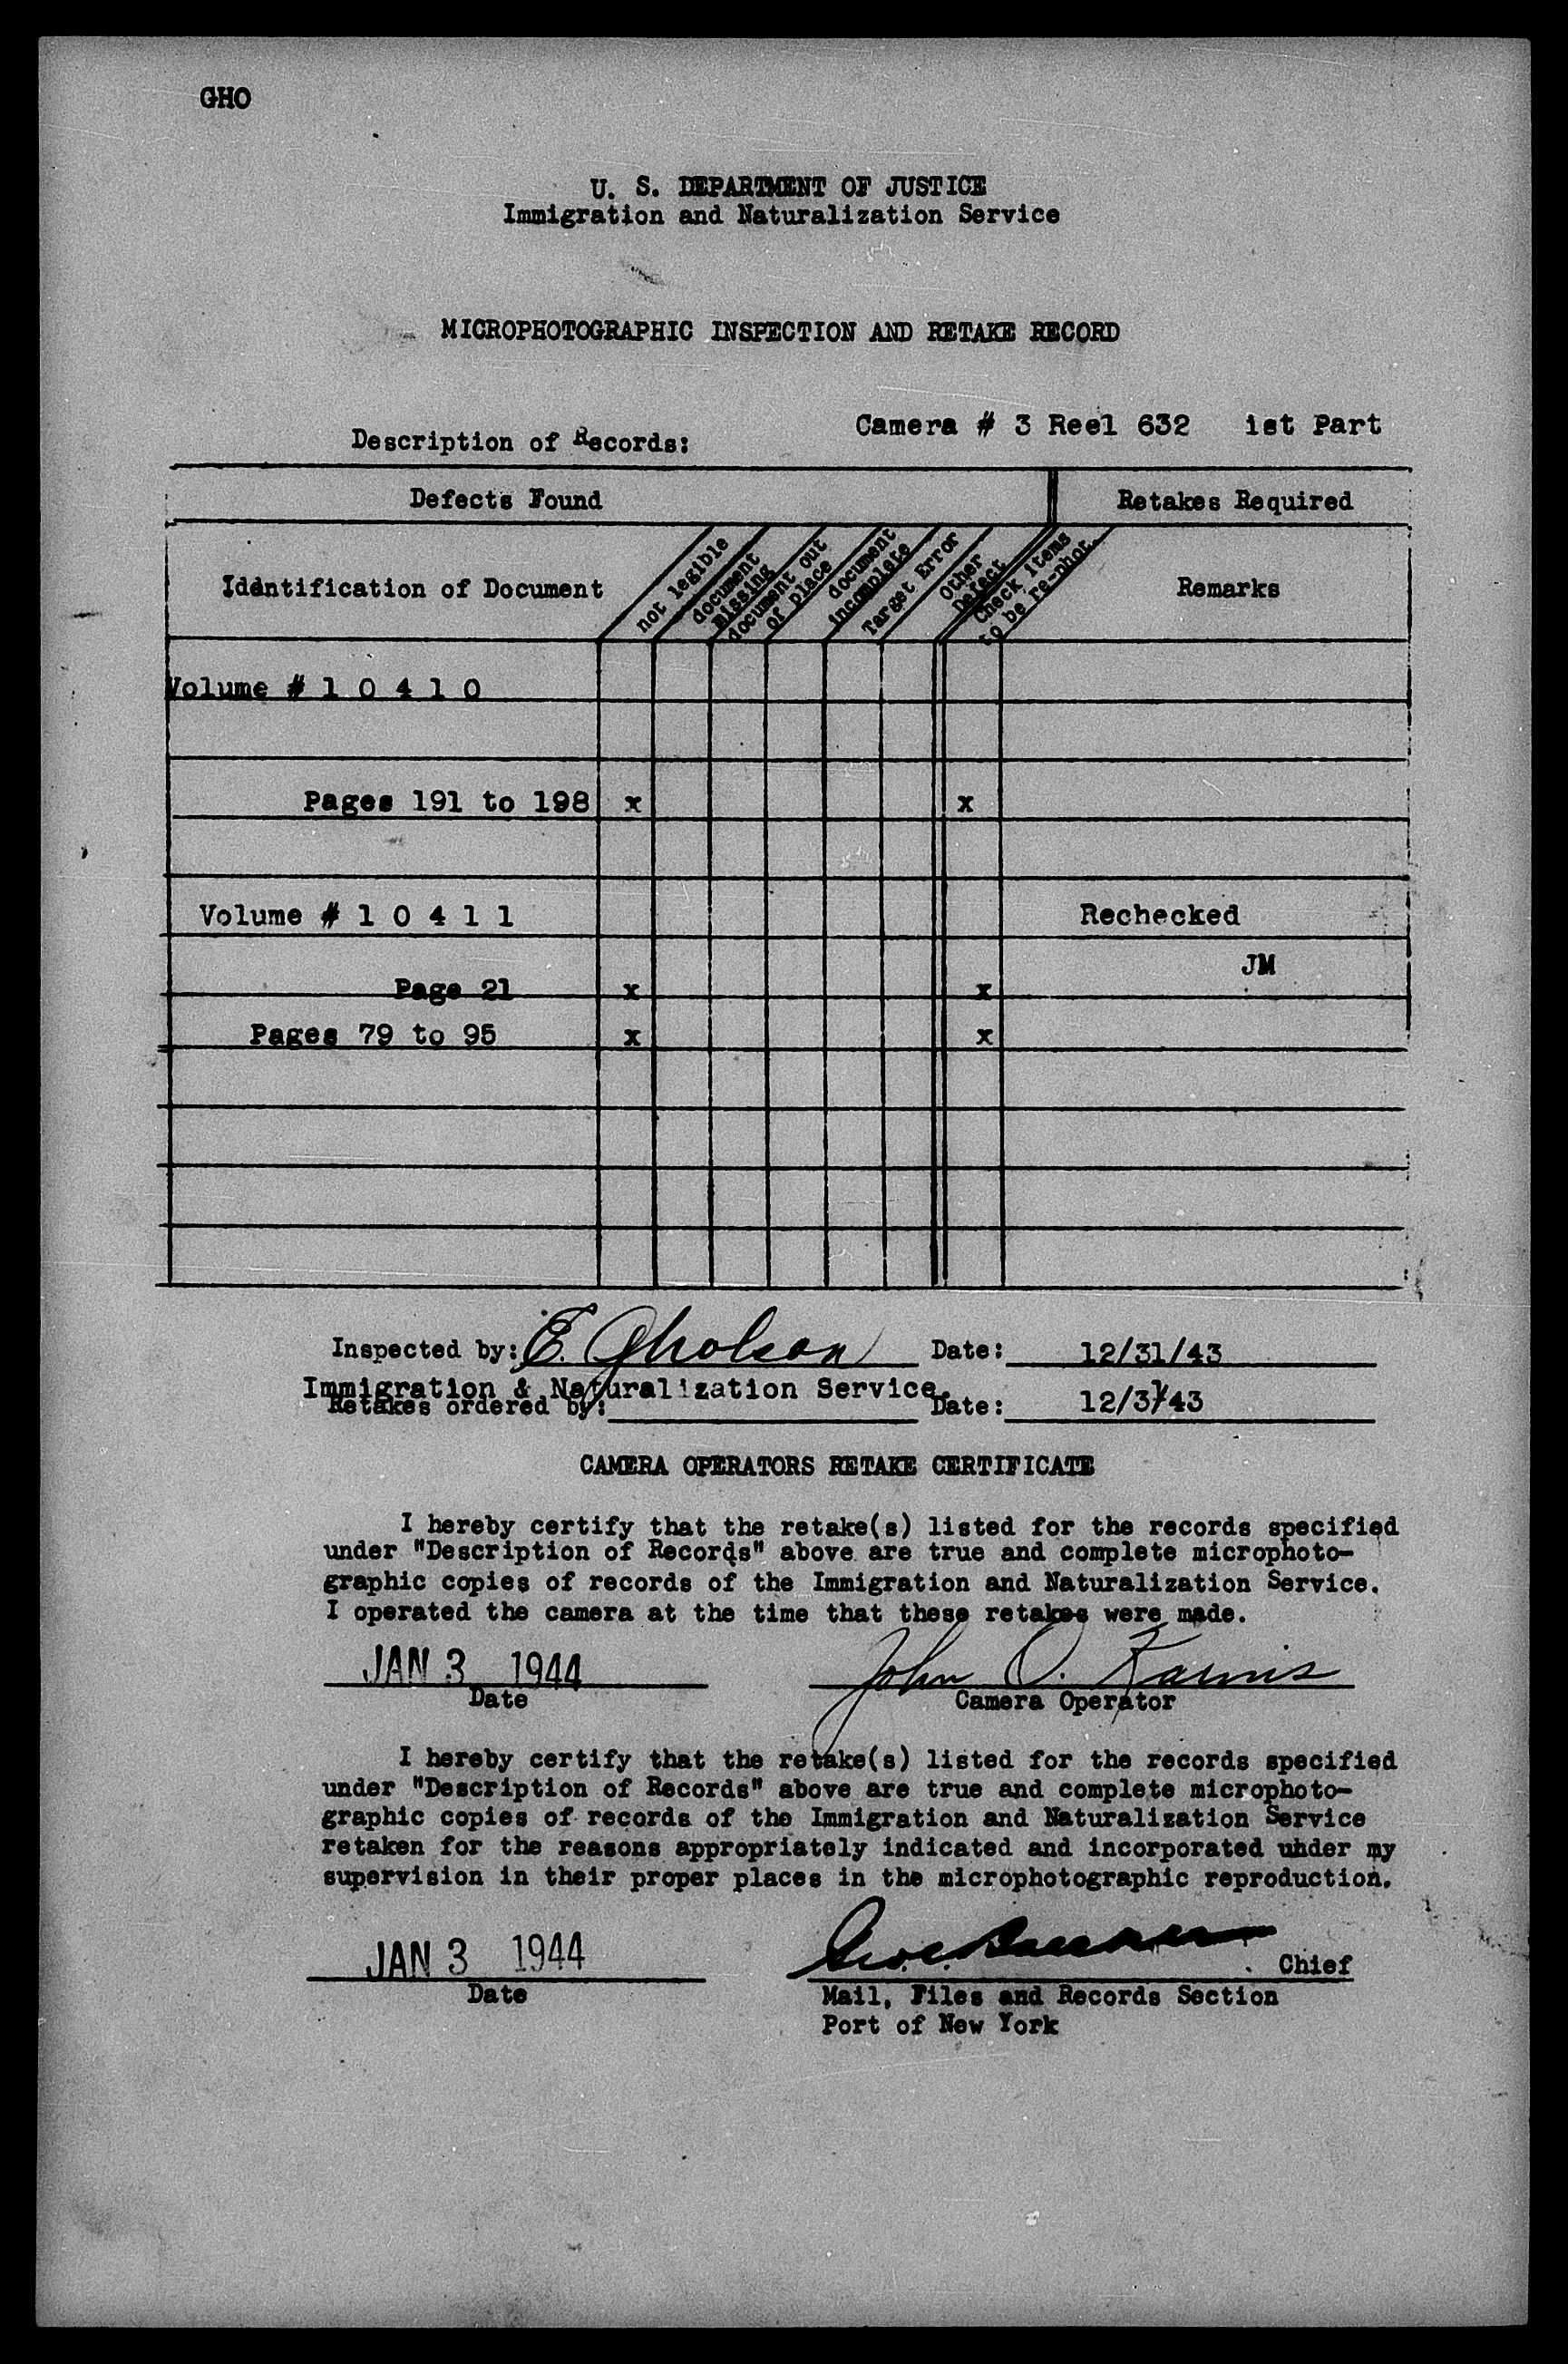 GHO
U. S. DEPARTMENT OF JUSTICE
Immigration and Naturalization Service
MICROPHOTOGRAPHIC INSPECTION AND RETAKE RECORD
Camera # 3 Reel 632 1st Part
Description of Records:
Defects Found
Retakes Required
Identification of Document
not legible
document missing
document out of place
document incomplete
Target Error
Other Defect
Check items to be re-phot.
Remarks
Volume # 1 0 4 1 0
Pages 191 to 198 x x
Volume # 1 0 4 1 1 Rechecked
JM
Page 21 x x
Pages 79 to 95 x x
Inspected by: E. Gholson Date: 12/31/43
Immigration & Naturalization Service.
Retakes ordered by: Date: 12/31/43
CAMERA OPERATORS RETAKE CERTIFICATE
I hereby certify that the retake(s) listed for the records specified
under "Description of Records" above are true and complete microphoto-
graphic copies of records of the Immigration and Naturalization Service.
I operated the camera at the time that these retakes were made.
JAN 3 1944 John O.
Date Camera Operator
I hereby certify that the retake(s) listed for the records specified
under "Description of Records" above are true and complete microphoto-
graphic copies of records of the Immigration and Naturalization Service
retaken for the reasons appropriately indicated and incorporated under my
supervision in their proper places in the microphotographic reproduction.
JAN 3 1944 Chief
Date Mail, Files and Records Section
Port of New York